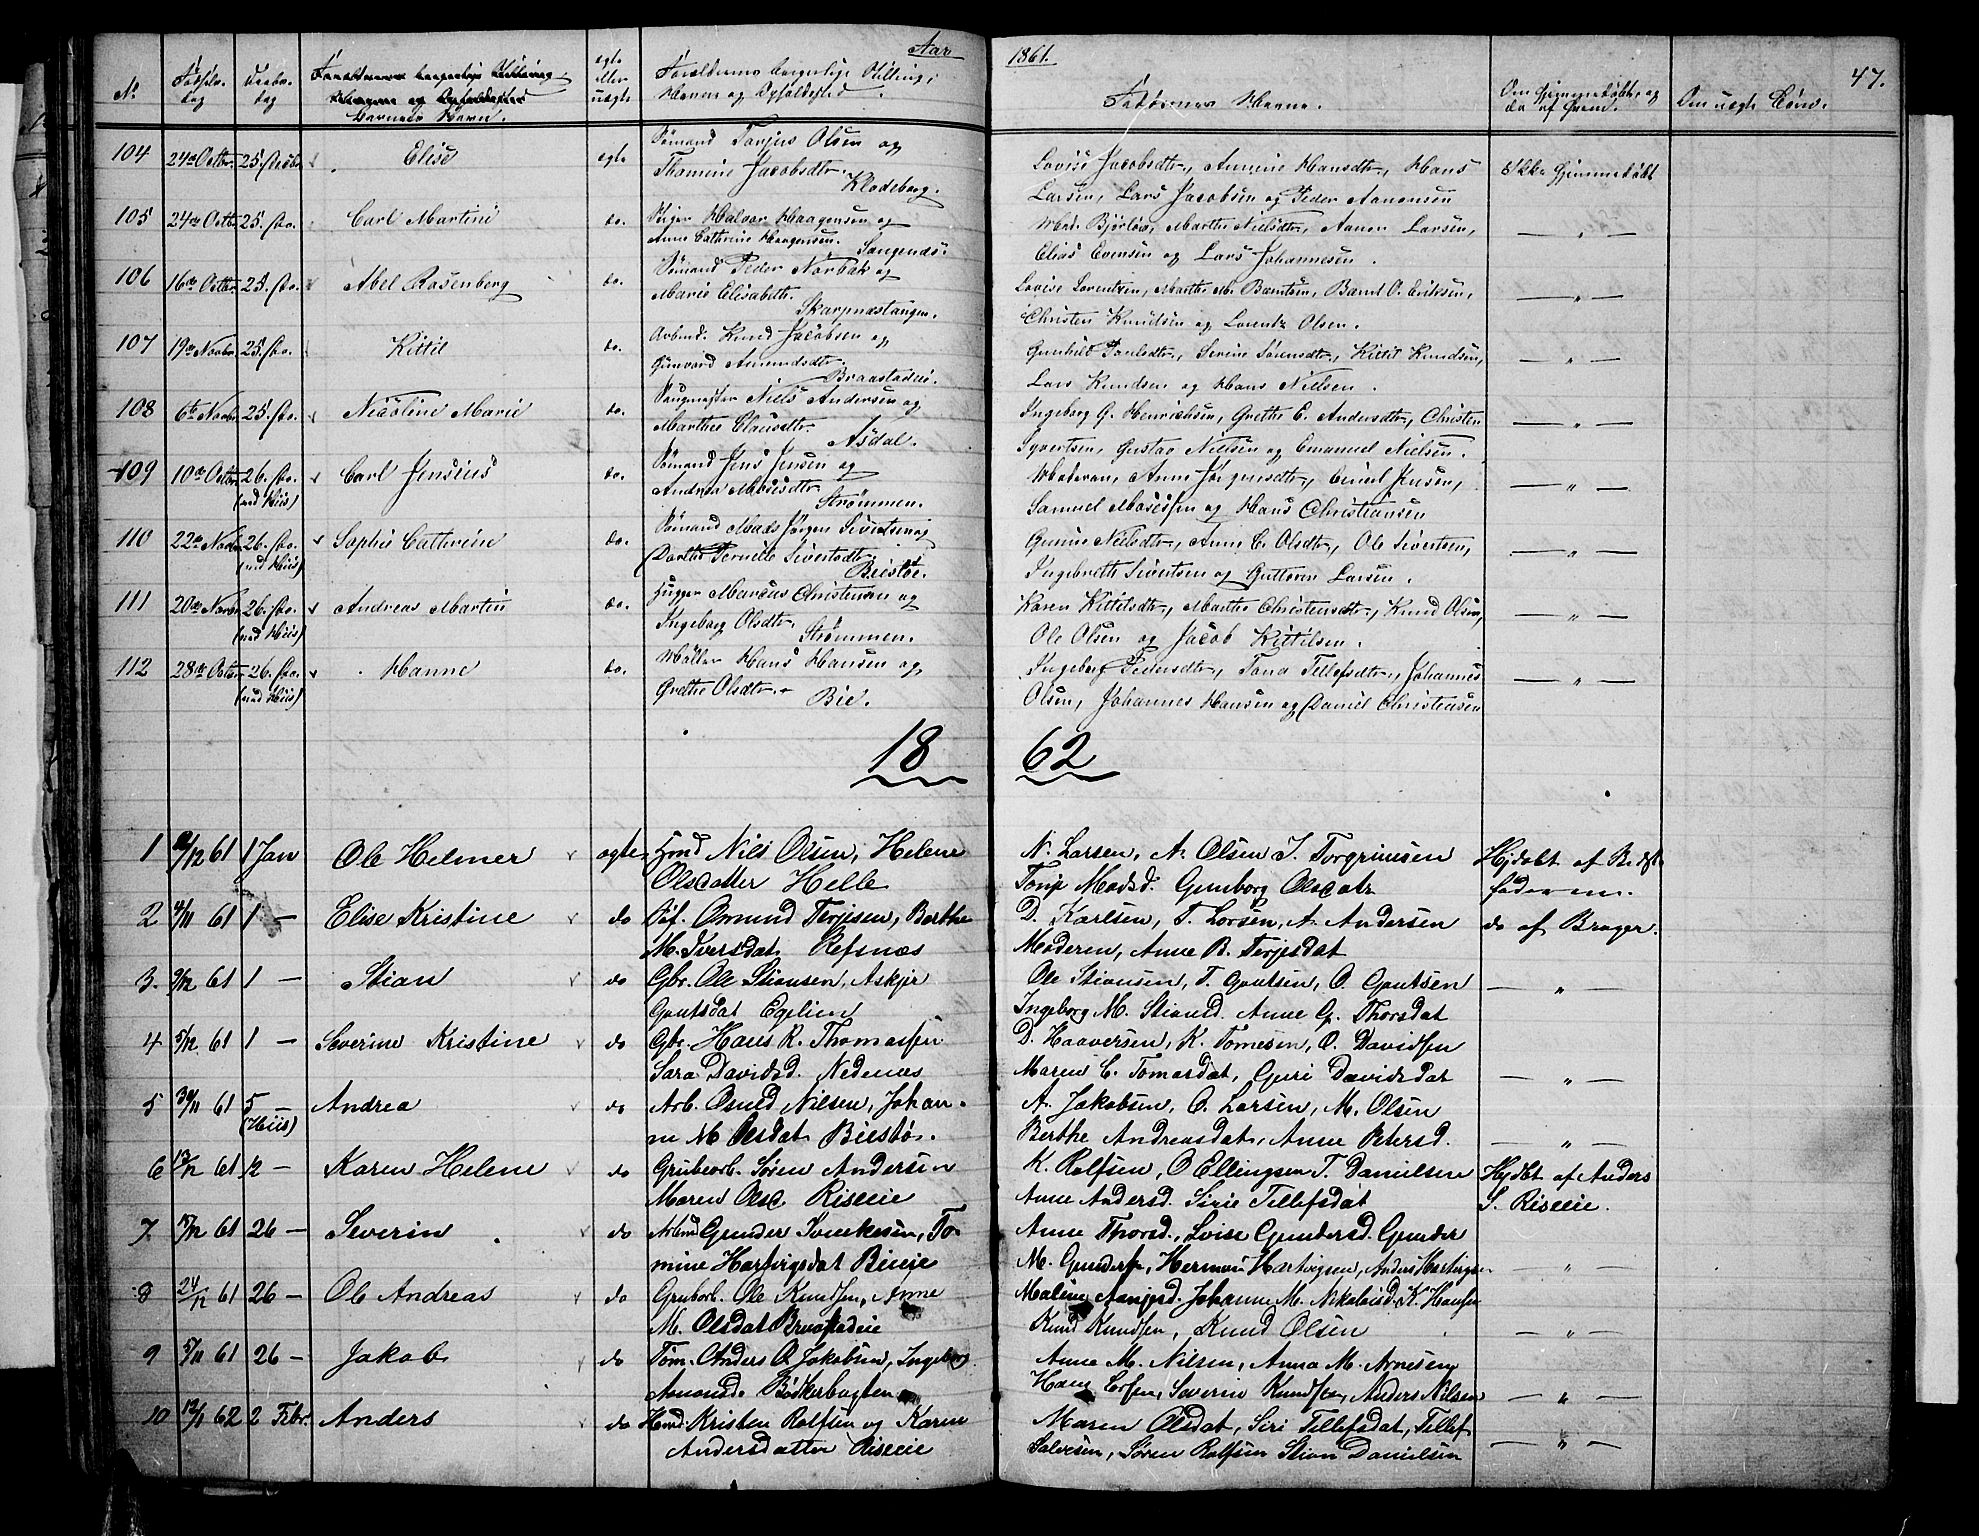 Aar 1861.
47.
No Fødsels- dag Daabs- dag Barnets Navn. ægte eller uægte Forældrenes borgerlige Stilling, Navn og Opholdssted. Faddernes Navne. Om hjemmedøbt, og da af hvem. Om uægte Børn.
104 24de Octbr. 25. Decbr. Elise egte Sømand Tarjus Olsen og
Thomine Jacobsdtr. Klodeberg.
Lovise Jacobsdtr., Annine Hansdtr., Hans
Ikke hjemmedøbt
Larsen, Lars Jacobsen og Peder Aanonsen
105 24de Octbr. 25. do. Carl Martin do. Halvor Haagensen og
Anne Cathrine Haagensen. Sangenæs.
Mad. Bjorlow, Marthe Nielsdtr., Aanon Larsen,
— " —
Elias Evensen og Lars Johannesen.
106 16de Octbr. 25. do. Abel Rosenberg do. Sømand Peder Norbak og
Marie Elisabeth. Skarpnæstangen.
Lovise Lorentzen, Marthe M. Berntsen, Bernt O. Eriksen,
— " —
Christen Knudsen og Lorentz Olsen.
107 19de Novbr. 25. do. Kittil do. Arbmd. Knud Jacobsen og
Gunvord Amundsdtr. Braastadeie.
Gunhild Poulsdtr., Serine Sørensdtr., Kittil Knudsen,
— " —
Lars Knudsen og Hans Nielsen.
108 6te Novbr. 25. do. Nicoline Marie do. Niels Andersen og
Marthe Clausdtr. Asdal.
Ingeborg G. Henrichsen, Grethe E. Andersdtr., Christen
— " —
Syvertsen, Gustav Nielsen og Emanuel Nielsen.
109 10de Octbr. 26. do. (ved Hiis) Carl Jensius do. Sømand Jens Jensen og
Andrea Mosesdtr. Strømmen.
Moderen, Anne Jørgensdtr., Emil Jensen,
— " —
Samuel Mosessen og Hans Christiansen
110 22de Novbr. 26. do. (ved Hiis) Sophie Cathrine do. Sømand Mads Jørgen Sivertsen og
Dorthe Pernille Sivertsdtr. Beistøe.
Gunine Nielsdtr., Anne C. Olsdtr., Ole Sivertsen,
— " —
Ingebreth Sivertsen og Guttorm Larsen.
111 20de Novbr. 26. do. (ved Hiis) Andreas Martin do. Marcus Christensen og
Ingeborg Olsdtr. Strømmen.
Karen Kittilsdtr., Marthe Christensdtr., Knud Olsen,
— " —
Ole Olsen og Jacob Kittilsen.
112 28de Octbr. 26. do. (ved Hiis) Hanne do. Møller Hans Hansen og
Grethe Olsdtr. Bie.
Ingeborg Pedersdtr., Tona Tellefsdtr., Johannes
— " —
Olsen, Johannes Hansen og Daniel Christensen
1862
1 /12 61 1 Jan Ole Helmer egte Hmd Nils Olsen, Helene
Olsdatter Helle
N. Larsen, A. Olsen J. Torgrimsen
Hjdøbt af Bedst-
Tonje Madsd. Gunborg Olsdatr
faderen.
2 4/11 61 1 — Elise Kristine do Søf. Omund Terjesen, Berthe
M. Iversdat. Refsnæs
D. Karlsen, T. Larsen, A. Andersen
do af Brager.
Moderen, Anne B. Terjesdat
3. 9/12 61 1 — Stian do Gbr. Ole Stiansen, Askjer
Gautsdat Egelien
Ole Stiansen, T. Gautsen, O. Gautsen
— " —
Ingeborg M. Stiansd. Anne G. Thorsdat
4 5/12 61 1 — Severine Kristine do Gbr. Hans R. Thomassen
Sara Davidsd. Nedenæs
D. Haaversen, K. Tomesen, O. Davidsen
Maren C. Tomasdat, Guri Davidsdat
— " —
5 30/11 61 5 — (Hiis) Andrea do Arb. Osmd Nilsen, Johan-
ne M. Olsdat Biestø.
A. Jakobsen, O. Larsen, M. Olsen
Berthe Andreasdat, Anne Petersd.
— " —
6 13/12 61 12 — Karen Helene do Grubearb. Søren Andersen
Maren Olsd. Riseeie
K. Rolfsen, O Ellingsen T. Danielsen
Hjdbt af Anders
Anne Andersd. Sirie Tellefsdat
S. Riseeie.
7. 15/12 61 26 — Severin do Arbmd Gunder Svenkesen, To-
mine Hartvigsdat Bieeie
Anne Thorsd., Lovise Gundersd. Gunder
M. Gunders, Herman Hartvigsen, Anders Hartvigsen
— " —
8 24/12 61 26 — Ole Andreas do Grubarb. Ole Knudsen, Anne
M. Olsdat Braastadeie
Maline Aanjesd. Johanne M. Nikolaisd. K. Hansen
Knud Knudsen, Knud Olsen
— " —
9 5/11 61 26 — Jakob do Tøm. Anders O. Jakobsen, Ingeborg
Amonsd. Bødkerbugten
Anne M. Nilsen, Anna M. Arnesen
Hans Larsen, Severin Knudsen, Anders Nilsen
— " —
10 12/1 62 2 Febr. Anders do Hmd. Kristen Rolfsen og Karen
Andersdatter Riseeie
Maren Olsdat, Siri Tellefsdat, Tellef
Salvesen, Søren Rolfsen Stian Danielsen
— " —